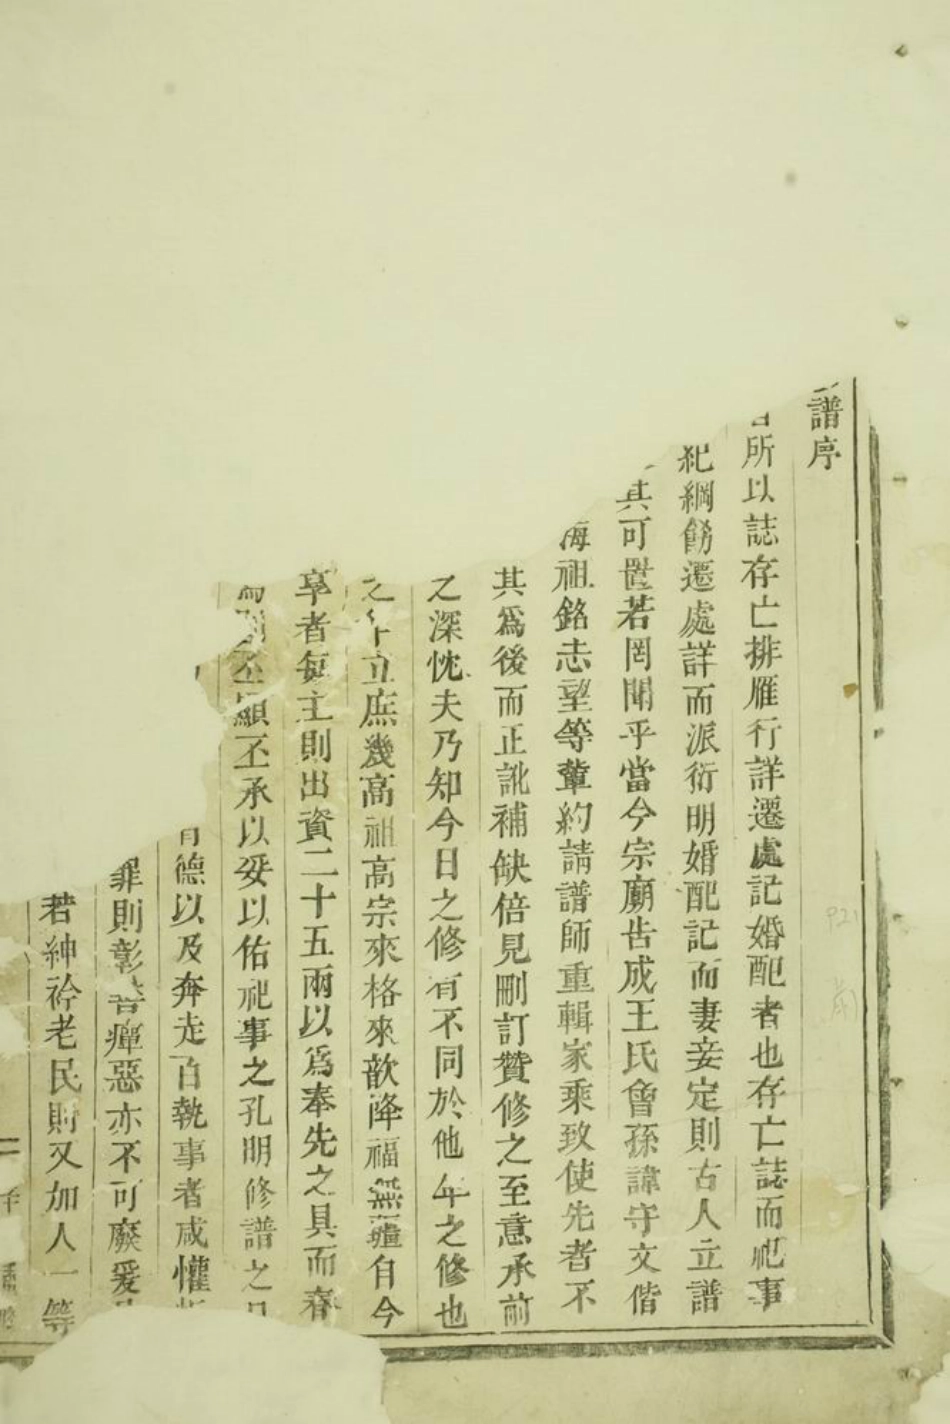 譜序
所以誌存亡排雁行詳遷處記婚配者也存亡誌而祀事
犯綱飭遷處詳而派衍明婚配記而妻妾定則古人立譜
其可置若罔聞乎當今宗廟告成王氏會孫諱守文偕
海祖銘志望等輩約請譜師重輯家乘致使先者不
其為後而正訛補缺倍見刪訂贊修之至意承前
之深忱夫乃知今日之修有不同於他年之修也
立庶幾高祖高宗來格來歆降福無疆自今
享者每主則出資二十五兩以為奉先之具而春
丕顯丕承以妥以佑祀事之孔明修譜之
德以及奔走百執事者咸懽
罪則彰善癉惡亦不可廢爰
若紳衿老民則又加人一等
二